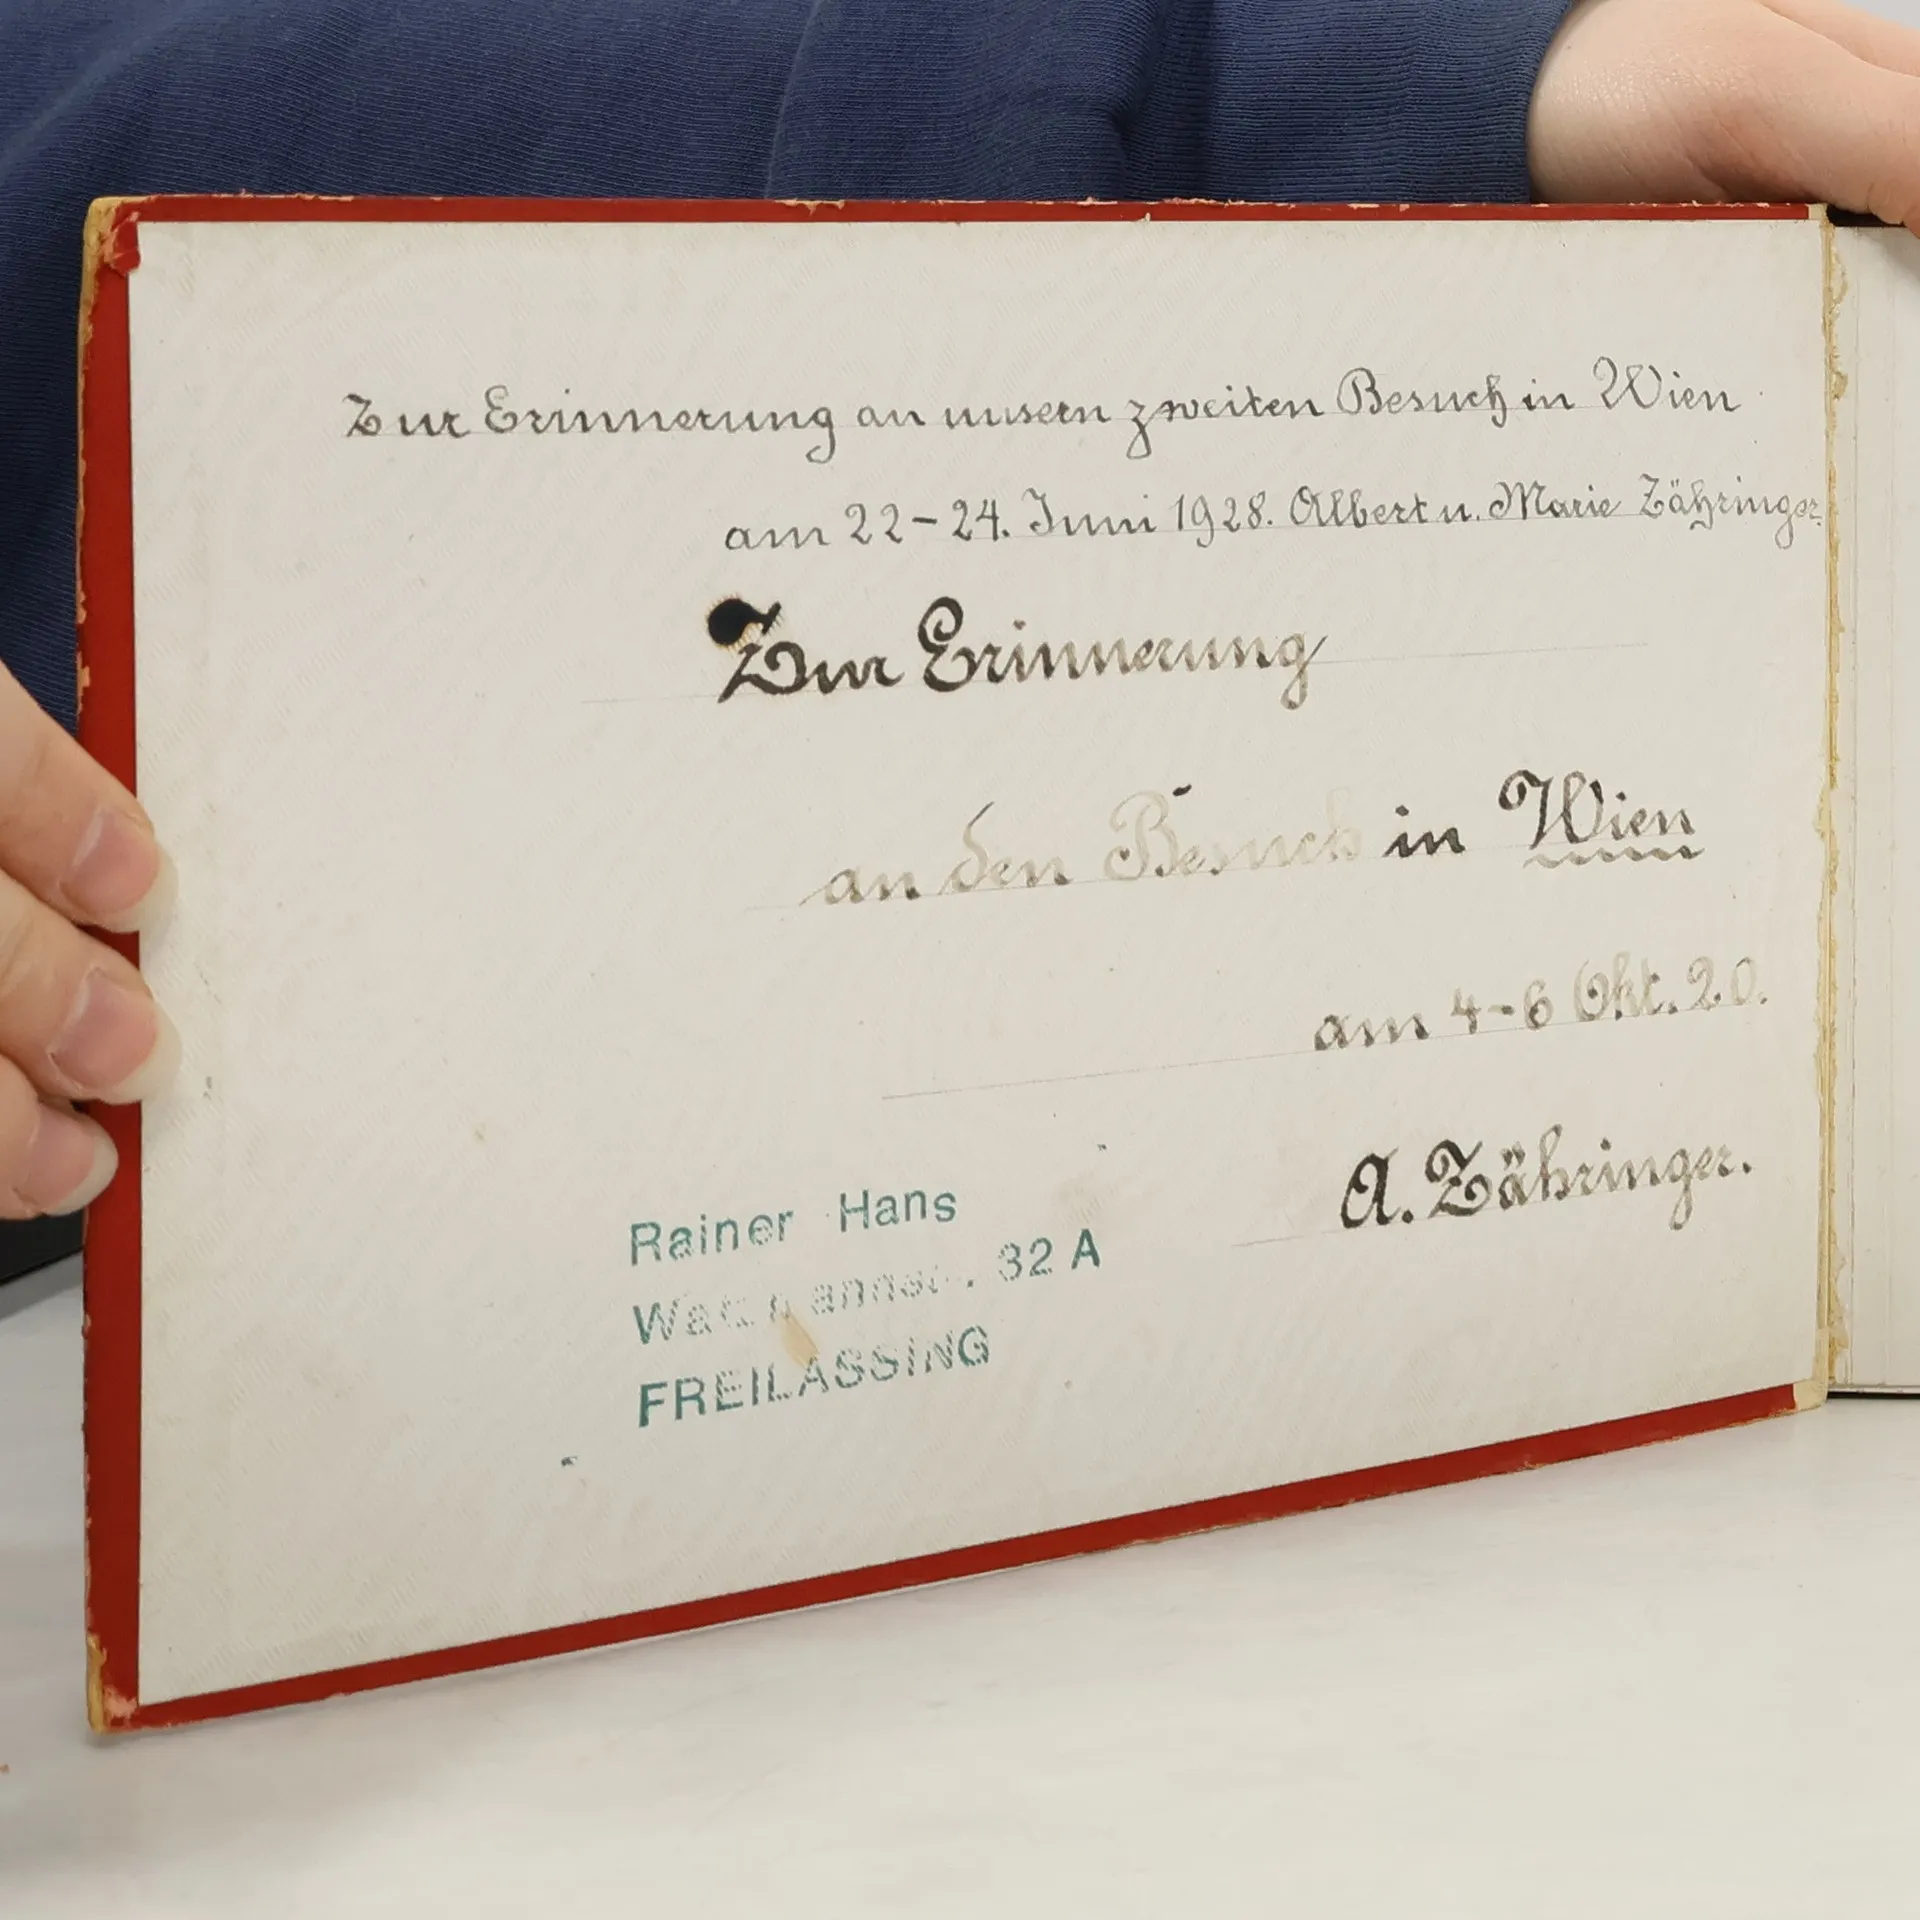 Zur Erinnerung an unsern zweiten Besuch in Wien
am 22-24. Juni 1928. Albert u. Marie Zähringer.
Zur Erinnerung
an den Besuch in Wien
am 4-6 Okt. 20.
A. Zähringer.
Rainer Hans
32 A
FREILASSING